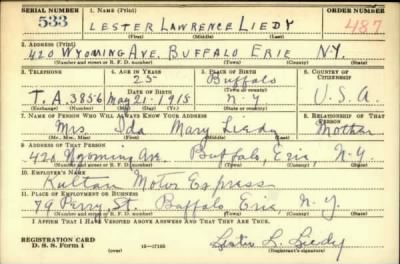 SERIAL NUMBER 1. NAME (Print) ORDER NUMBER
533 LESTER LAWRENCE LIEDY 487
(First) (Middle) (Last)
2. ADDRESS (Print)
420 WYOMING AVE. BUFFALO ERIE N.Y.
(Number and street or R. F. D. number) (Town) (County) (State)
3. TELEPHONE 4. AGE IN YEARS 5. PLACE OF BIRTH 6. COUNTRY OF CITIZENSHIP
25 Buffalo
DATE OF BIRTH
T.A. 3856 May 21 1915 N.Y. U.S.A.
(Exchange) (Number) (Mo.) (Day) (Yr.) (State or country)
7. NAME OF PERSON WHO WILL ALWAYS KNOW YOUR ADDRESS 8. RELATIONSHIP OF THAT PERSON
Mrs Ida Mary Liedy Mother
(Mr., Mrs., Miss) (First) (Middle) (Last)
9. ADDRESS OF THAT PERSON
420 Wyoming Ave. Buffalo, Erie N.Y.
(Number and street or R. F. D. number) (Town) (County) (State)
10. EMPLOYER'S NAME
Motor Express
11. PLACE OF EMPLOYMENT OR BUSINESS
79 Perry St. Buffalo Erie N.Y.
(Number and street or R. F. D. number) (Town) (County) (State)
I AFFIRM THAT I HAVE VERIFIED ABOVE ANSWERS AND THAT THEY ARE TRUE.
REGISTRATION CARD
D. S. S. Form 1 (over) 16-17105
Lester L. Liedy
(Registrant's signature)